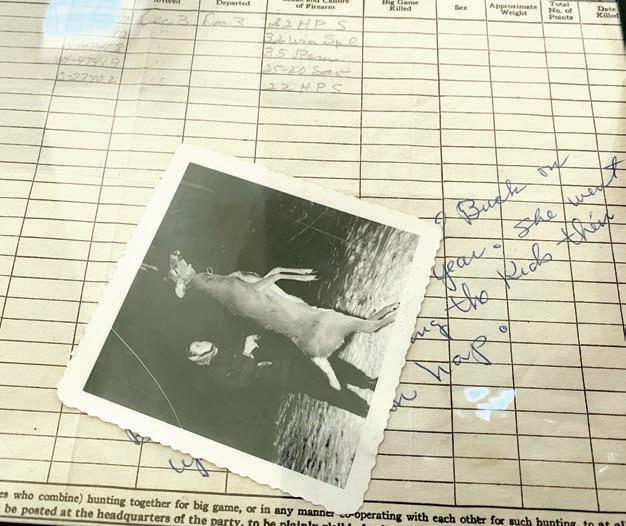 Arrived Departed and Calibre of Firearm Big Game Killed Sex Approximate Weight Total No. of Points Date Killed
Dec 3 Dec 3 22 H P S
32 Win Spl
35 Rem
25-20 Sav
22 H.P.S
Buck on
year. She went
the Kids then
nap.
up
es who combine) hunting together for big game, or in any manner co-operating with each other for such hunting, to at al
be posted at the headquarters of the party, to be plainly